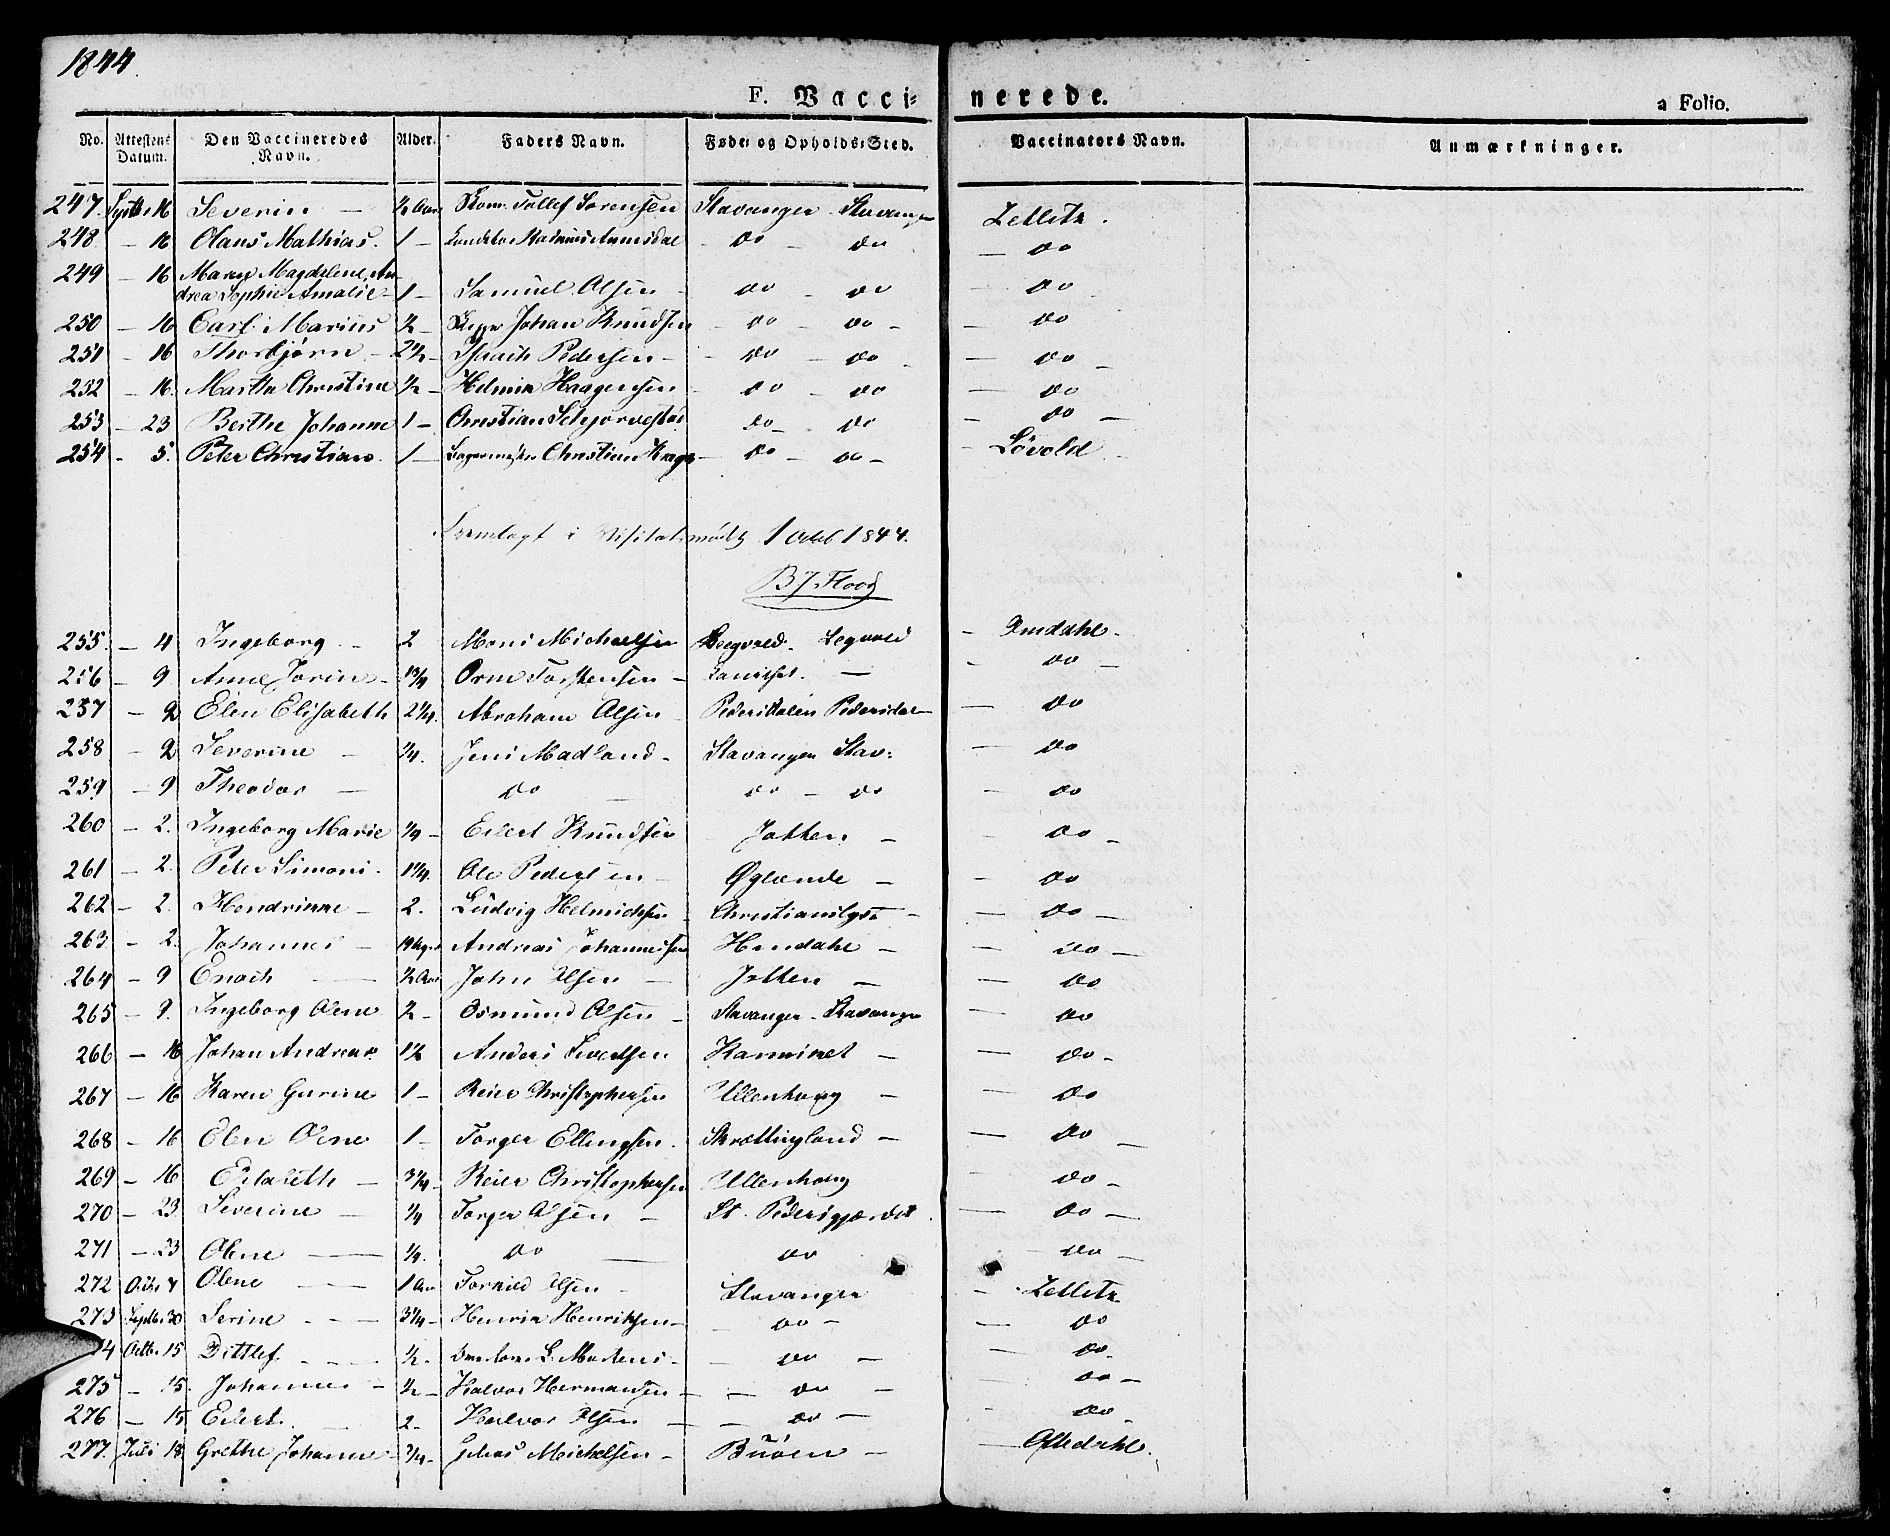 1844.
F. Vaccinerede. a Folio.
No. Attestens Datum. Den Vaccineredes Navn. Alder. Faders Navn. Føde- og Opholds-Sted. Vaccinators Navn. Anmærkninger.
247. Septbr 16 Severin — ½ Aar Tollef Sørensen Stavanger Stavanger Zetlitz.
248 — 16 Olaus Mathias. 1 — do — do — do
249 — 16 Maren Magdalene, Andrea Sophie Amalie — 1 — Samuel Olsen — do — do — do
250 — 16 Carl Marius ½ — Johan Knudsen — do — do — — do
251 — 16 Thorbjørn — 2½ — Pedersen — do — do — do —
252 — 16. Martha Christine ½ — Helmik Haggensen — do — do — do
253 — 23 Berthe Johanne 1 — Christian — do — do — do —
254 — 5. Peter Christian. 1 — Christian — do — do — — Løvold
Fremlagt i 1 Octob 1844.
B J Flood
255. — 4 Ingeborg — 2 Mons Michaelsen — Omdahl.
256 — 9 Anne Jorine — 1¾ Orm Torstensen — — — do —
257 — 9 Elen Elisabeth 2¼. Abraham Olsen Pedersdalen Pedersdal — — do
258 — 9 Severine — ¼. Jens Madland — Stavanger Stav: — do
259 — 9 Theodor — do — do — do — do
260 — 2. Ingeborg Marie ¼ — Eilert Knudsen Jotten — — do —
261 — 2. Peter Simon. 1¼. Ole Pedersen — Øglænde — — do
262 — 2. Hendrikke — 2. Ludvig Helmichsen Christianslyst — — do —
263 — 2. Johannes — Andreas Johannessen — — do —
264 — 9 Enoch — ½ Aar John Olsen — Jotten — — do
265 — 9. Ingeborg Olene ½ — Osmund Olsen — Stavanger — Stavanger — do
266 — 16 Johan Andreas 1½ Anders — — do —
267 — 16 Karen Gurine 1 — Reier Christophersen Ullenhoug — — do
268 — 16 Elen Olene 1 — Torger Ellingsen. — — do —
269 — 16 Elisabeth — 3¼ — Reier Christophersen Ullenhoug — do —
270 — 23 Severine — ¼ Torger Olsen — St. Pedersgjærdet. — do —
271 — 23 Olene — ¼. do — do — do —
272 Octbr 7 Olene — 1 Aar Olsen — Stavanger — Zetlitz
273 Septbr 30 Serine — 3¼ — Henrik Henriksen — — do — — do
4 Octbr 15 Ditlef — ½ — — do — — do —
275 — 15. Johannes — ½ — Halvor Hermansen — — do — — do —
276 — 15 Eilert. — 2 — Halvor Olsen — — do — — do —
277. Juli 18 Grethe Johanne — ¾ — Michelsen — Buøen — — Oftedahl.